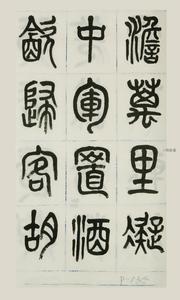 澹萬里凝
中軍置酒
飲歸客胡